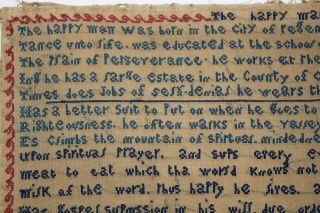 The happy ma
The happy man was born in the City of Regen
Tance unto Life. was educated at the school
The Plain of Perseverance. he works at the
Ing he has a Large Estate in the County of C
Times does Jobs of self-denial he wears th
Has a better Suit to Put on when he goes to
Righteousness. he often walks in the valley
Es Climbs the mountain of spiritual mindedne
upon spiritual Prayer. and sups every e
meat to eat which the world Knows not
milk of the word. thus happy he Lives. a
as Gospel submission in his will due orde